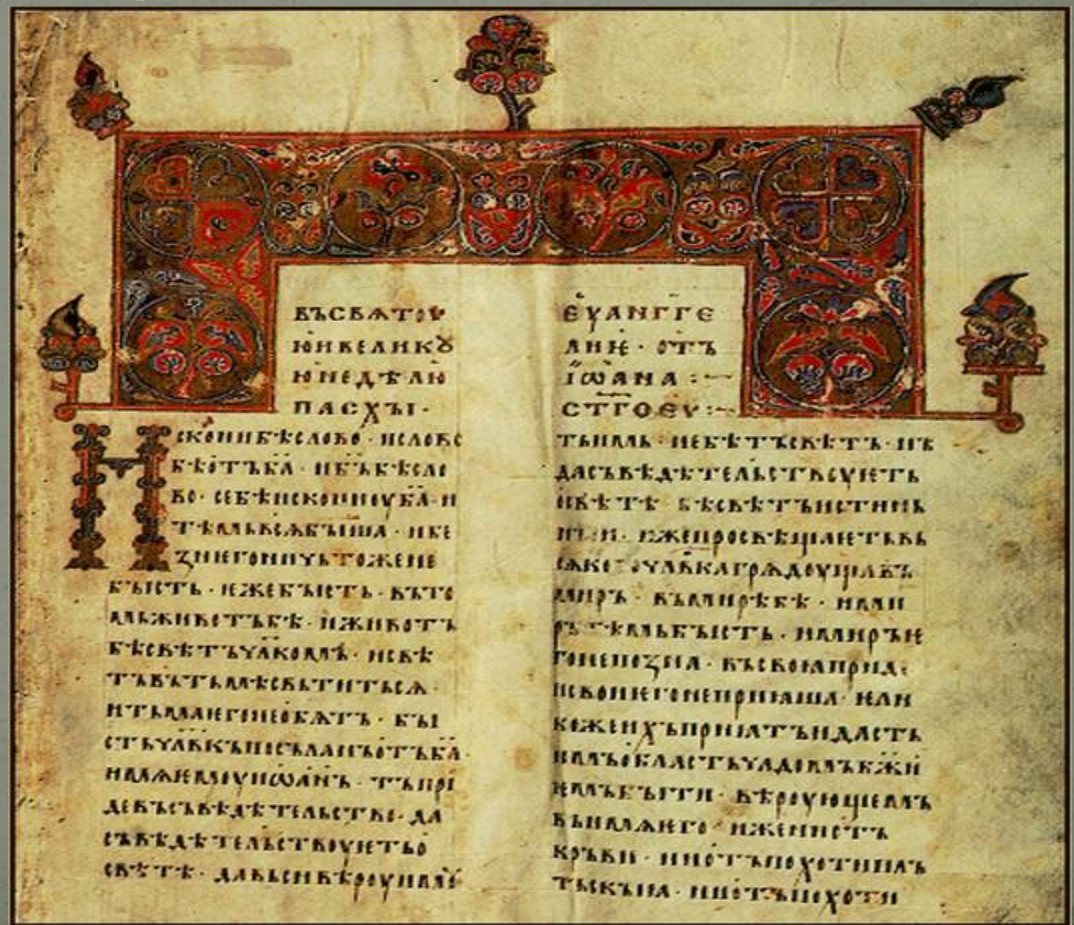 ВЪСВѦТОУ
ЮИВЕЛИКꙊ
ЮНЕДѢЛЮ
ПАСХЪІ·
ИСКОНИБѢСЛОВО · ИСЛОВО
БѢОТЪБ҃А · ИБ҃ЪБѢСЛО
ВО · СЕБѢИСКОНИОУБ҃А · И
ТѢМЬВСѦБЫША · ИБЕ
ЗНІЕГОНИЧЬТОЖЕНЕ
БЪІСТЬ · ЕЖЕБЪІСТЬ · ВЪТО
МЬЖИВОТЪБѢ · ИЖИВОТЪ
БѢСВѢТЪЧЛ҃КОМЪ · ИСВѢ
ТЪВЪТЬМѢСВЬТИТЬСѦ ·
ИТЬМАѤГОНЕОБѦТЪ · БЪІ
СТЬЧЛ҃ВКЪПОСЪЛАНЪОТЪБ҃А ·
ИМѦѤМОУИѠАНЪ · ТЪПРІ
ДЕВЪСЪВѢДѢТЕЛЬСТВО · ДА
СЪВѢДѢТЕЛЬСТВОУѤТЬО
СВѢТѢ · ДАВЬСИВѢРОУ
ЕУАНГГЕ
ЛИѤ · ОТЪ
ІѠАНА
СТГОЕУ
ТЬИМЬ · НЕБѢТЪСВѢТЪ · НЪ
ДАСЪВѢДѢТЕЛЬСТВОУѤТЬ
ОСВѢТѢ · БѢСВѢТЪИСТИНЬ
НЪІИ · ИЖЕПРОСВѢЩАѤТЬВЬ
СѦКОГОЧЛ҃ВКАГРѦДОУЩАВЪ
МИРЪ · ВЪМИРѢБѢ · ИМИ
РЪТѢМЬБЪІСТЬ · ИМИРЪѤ
ГОНЕПОЗНА · ВЪСВОІАПРИДЕ
ИСВОИѤГОНЕПРИІАША · ѤЛИ
КОЖЕИХЪПРИІАТЪИДАСТЬ
ИМЪОБЛАСТЬЧАДОМЪБ҃ЖИ
ѤМЪБЪІТИ · ВѢРОУЮЩИЕМЪ
ВЪИМѦѤГО · ИЖЕНИОТЪ
КРЪВИ · НИОТЪПОХОТИПЛЪ
ТЬСКЪІІА · НИОТЪПОХОТИ